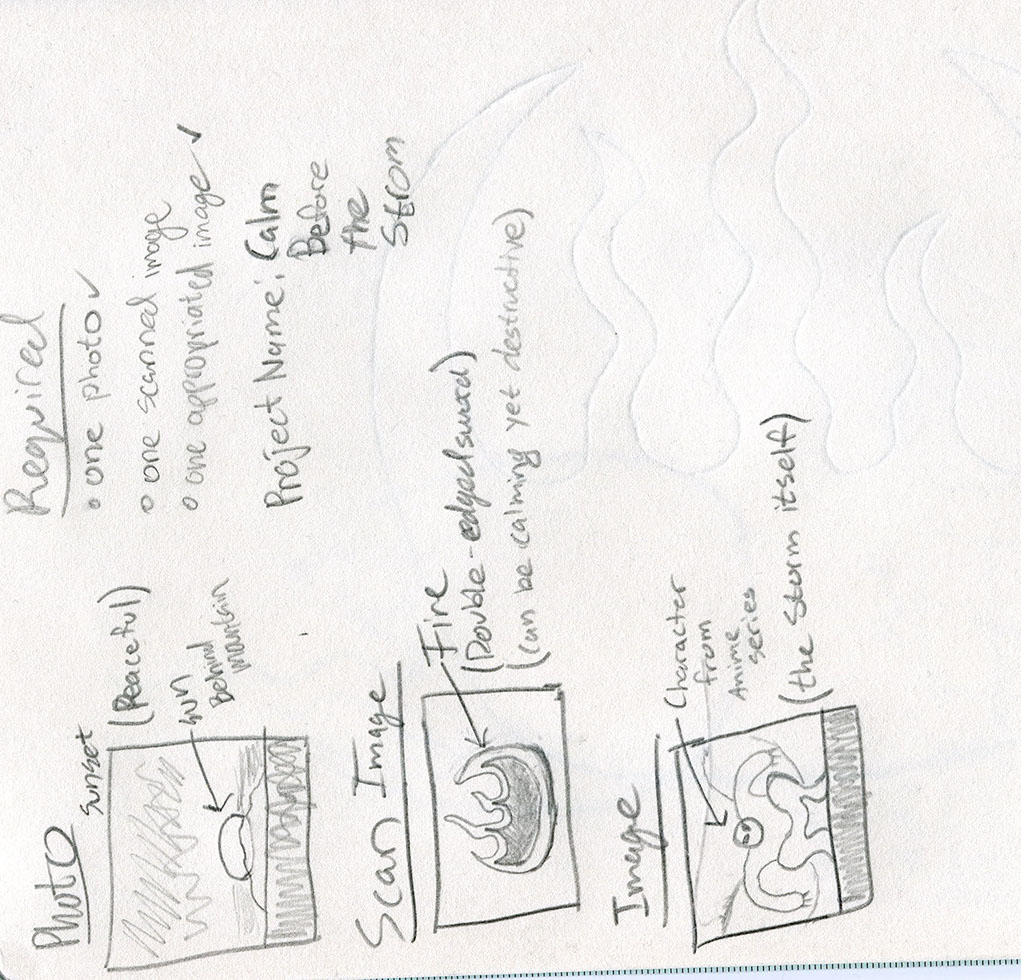 Photo
sunset
(Peaceful)
sun
Behind
mountain
Scan Image
Fire
(Double-edged sword)
(can be calming yet destructive)
Image
Character
from
Anime
series
(the storm itself)
Required
• one photo ✓
○ one scanned image
○ one appropriated image ✓
Project Name: Calm
Before
the
Strom